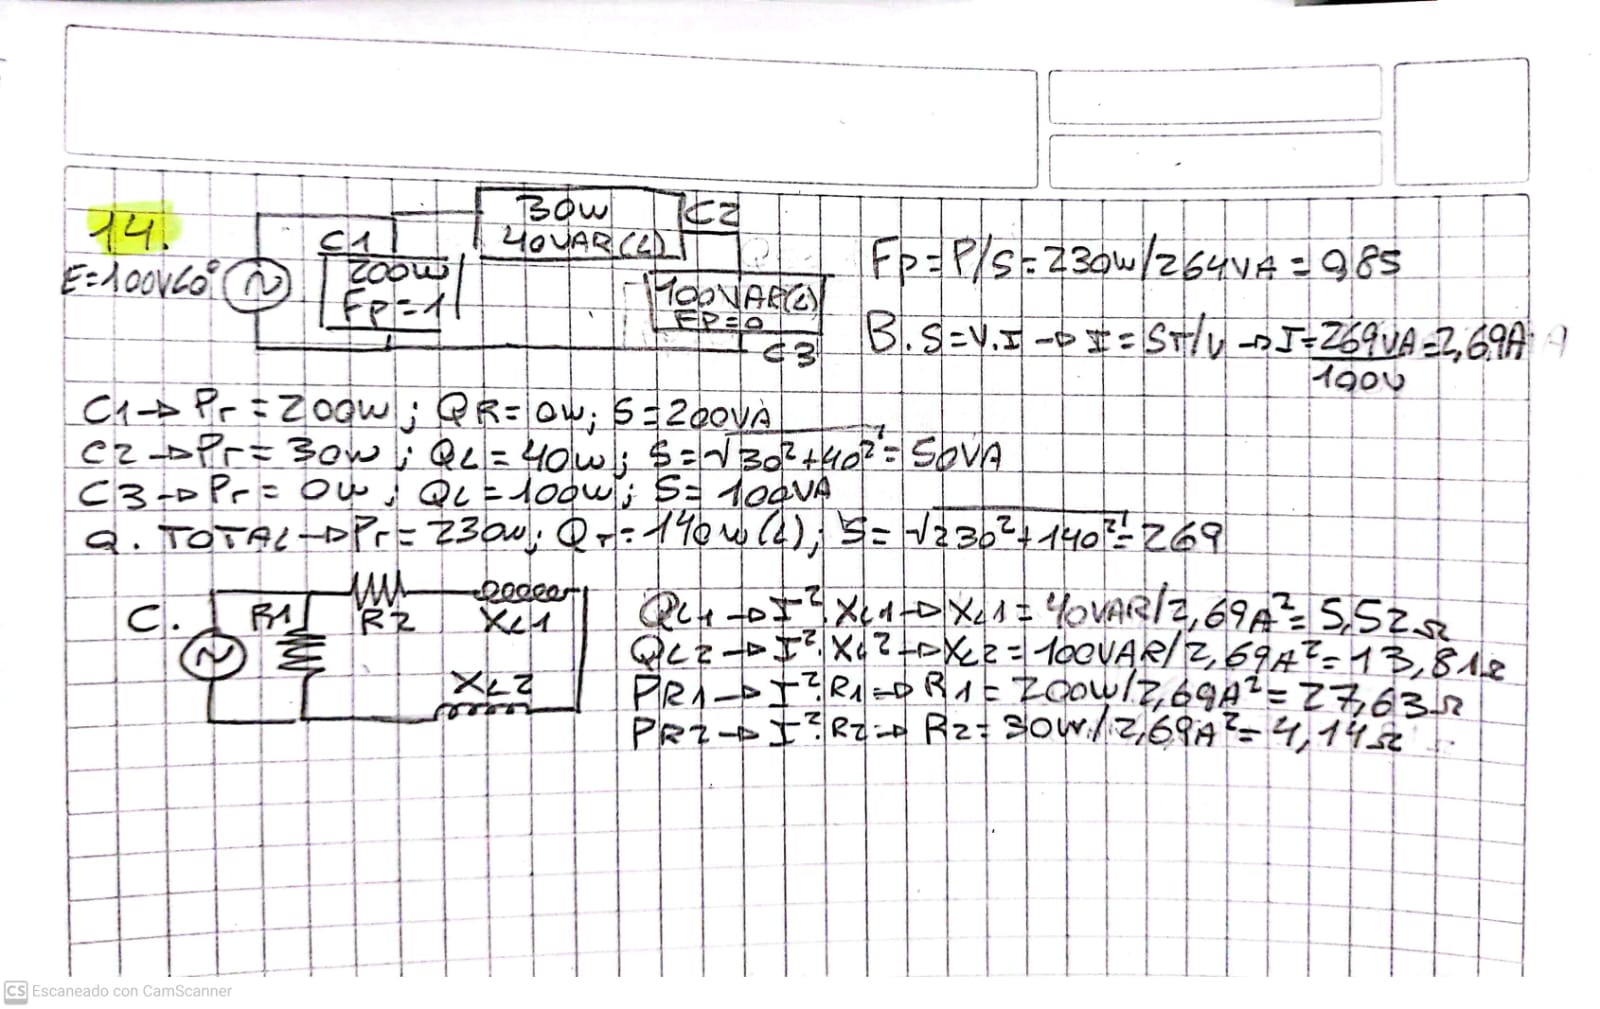 14.
E=100V∠0°
C1
200w
Fp=1
30w
40VAR(L)
C2
100VAR(L)
FP=0
C3
Fp=P/S=230w/264VA=0,85
B. S=V.I → I=ST/V → I=269VA/100V=2,69A
C1→ Pr=200w; QR=0w; S=200VA
C2→Pr=30w; QL=40w; S=√30²+40²=50VA
C3→Pr=0w; QL=100w; S=100VA
a. TOTAL→Pr=230w; Qr=140w(L); S=√230²+140²=269
C.
R1
R2
XL1
XL2
QL1→I².XL1→XL1=40VAR/2,69A²=5,52Ω
QL2→I².XL2→XL2=100VAR/2,69A²=13,81Ω
PR1→I².R1→R1=200w/2,69A²=27,63Ω
PR2→I².R2→R2=30w/2,69A²=4,14Ω
CS Escaneado con CamScanner